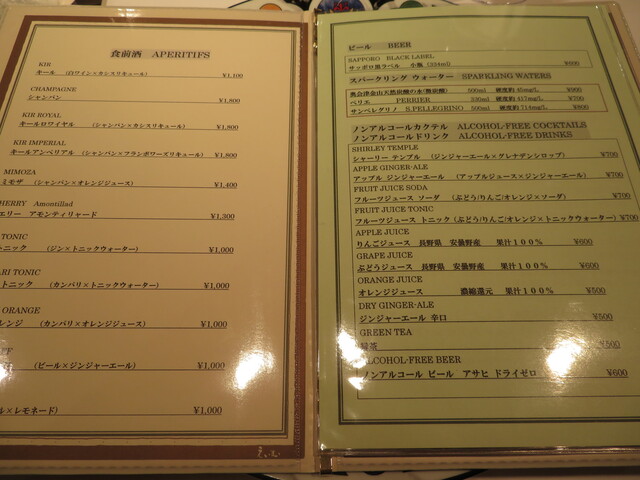 食前酒 APERITIFS
KIR
キール (白ワイン×カシスリキュール) ¥1,100
CHAMPAGNE
シャンパン ¥1,800
KIR ROYAL
キールロワイヤル (シャンパン×カシスリキュール) ¥1,800
KIR IMPERIAL
キールアンペリアル (シャンパン×フランボワーズリキュール) ¥1,800
MIMOZA
ミモザ (シャンパン×オレンジジュース) ¥1,400
HERRY Amontillad
エリー アモンティリャード ¥1,300
TONIC
トニック (ジン×トニックウォーター) ¥1,000
ARI TONIC
トニック (カンパリ×トニックウォーター) ¥1,000
ORANGE
レンジ (カンパリ×オレンジジュース) ¥1,000
(ビール×ジンジャーエール) ¥1,000
ル×レモネード) ¥1,000
ビール BEER
SAPPORO BLACK LABEL
サッポロ黒ラベル 小瓶 (334ml) ¥600
スパークリング ウォーター SPARKLING WATERS
奥会津金山天然炭酸の水(微炭酸) 500ml 硬度約45mg/L ¥900
ペリエ PERRIER 330ml 硬度約417mg/L ¥700
サンペレグリノ S.PELLEGRINO 500ml 硬度約714mg/L ¥800
ノンアルコールカクテル ALCOHOL-FREE COCKTAILS
ノンアルコールドリンク ALCOHOL-FREE DRINKS
SHIRLEY TEMPLE
シャーリー テンプル (ジンジャーエール×グレナデンシロップ) ¥700
APPLE GINGER-ALE
アップル ジンジャーエール (アップルジュース×ジンジャーエール) ¥700
FRUIT JUICE SODA
フルーツジュース ソーダ (ぶどう/りんご/オレンジ×ソーダ) ¥700
FRUIT JUICE TONIC
フルーツジュース トニック (ぶどう/りんご/オレンジ×トニックウォーター) ¥700
APPLE JUICE
りんごジュース 長野県 安曇野産 果汁100% ¥600
GRAPE JUICE
ぶどうジュース 長野県 安曇野産 果汁100% ¥600
ORANGE JUICE
オレンジジュース 濃縮還元 果汁100% ¥500
DRY GINGER-ALE
ジンジャーエール 辛口 ¥500
GREEN TEA
茶 ¥500
ALCOHOL-FREE BEER
ノンアルコール ビール アサヒ ドライゼロ ¥600